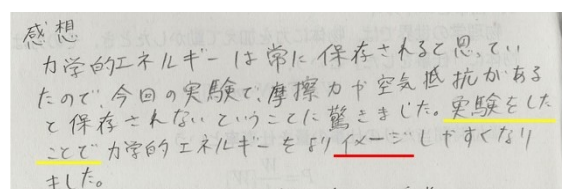 感想
力学的エネルギーは常に保存されると思ってい
たので、今回の実験で、摩擦力や空気抵抗がある
と保存されないということに驚きました。実験をした
ことで力学的エネルギーをよりイメージしやすくなり
ました。